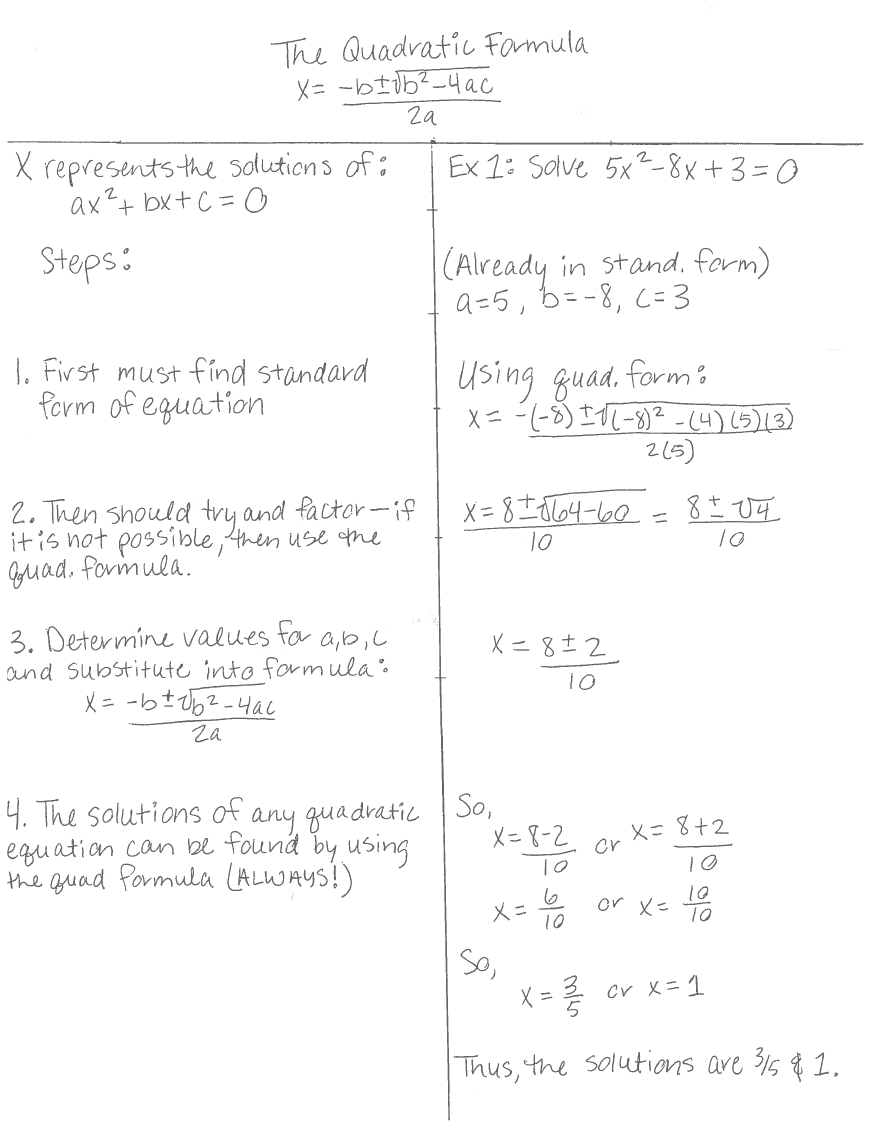 The Quadratic Formula
x = -b±√b²-4ac
2a
X represents the solutions of:
ax²+ bx + c = 0
Steps:
1. First must find standard
form of equation
2. Then should try and factor – if
it is not possible, then use the
quad. formula.
3. Determine values for a, b, c
and substitute into formula:
x = -b±√b²-4ac
2a
4. The solutions of any quadratic
equation can be found by using
the quad formula (ALWAYS!)
Ex 1: Solve 5x²-8x+3=0
(Already in stand. form)
a=5, b=-8, c=3
Using quad. form:
x = -(-8) ±√(-8)² -(4)(5)(3)
2(5)
x = 8±√64-60 = 8 ± √4
10 10
x = 8 ± 2
10
So,
x = 8-2 or x = 8+2
10 10
x = 6/10 or x = 10/10
So,
x = 3/5 or x = 1
Thus, the solutions are 3/5 & 1.